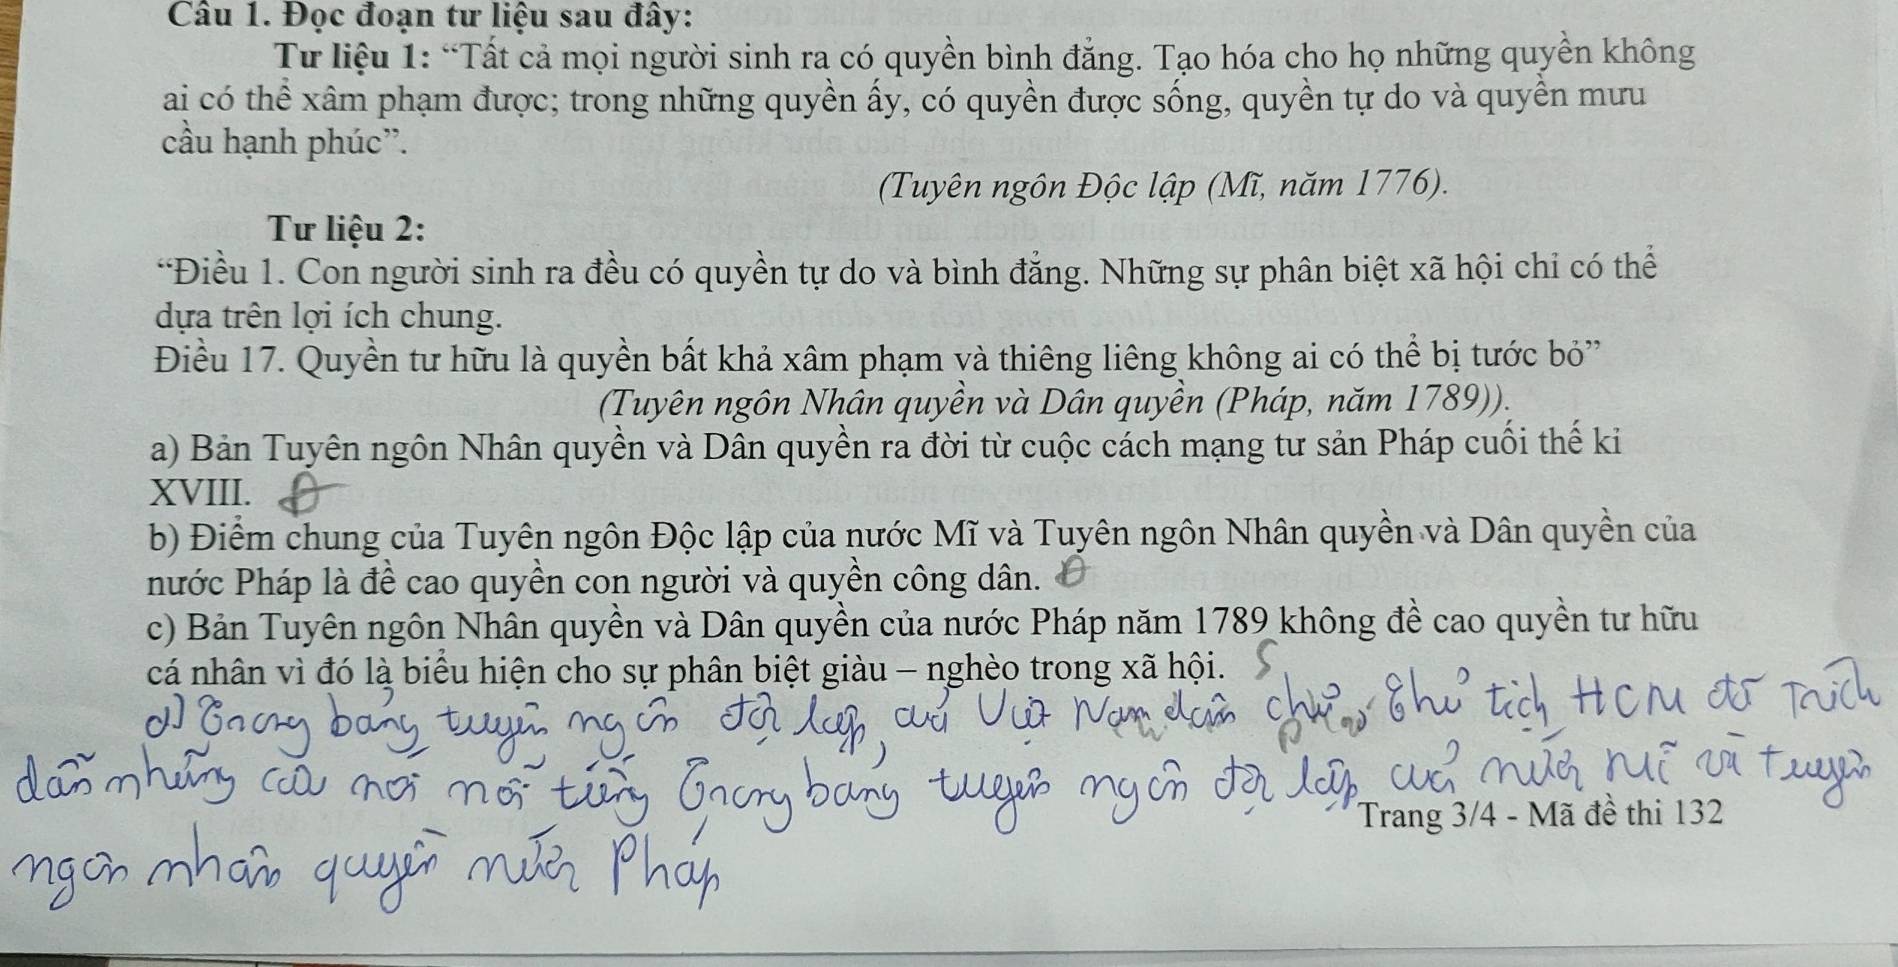 Câu 1. Đọc đoạn tư liệu sau đây:
Tư liệu 1: “Tất cả mọi người sinh ra có quyền bình đẳng. Tạo hóa cho họ những quyền không
ai có thể xâm phạm được; trong những quyền ấy, có quyền được sống, quyền tự do và quyền mưu
cầu hạnh phúc”.
(Tuyên ngôn Độc lập (Mĩ, năm 1776).
Tư liệu 2:
“Điều 1. Con người sinh ra đều có quyền tự do và bình đẳng. Những sự phân biệt xã hội chỉ có thể
dựa trên lợi ích chung.
Điều 17. Quyền tư hữu là quyền bất khả xâm phạm và thiêng liêng không ai có thể bị tước bỏ”
(Tuyên ngôn Nhân quyền và Dân quyền (Pháp, năm 1789)).
a) Bản Tuyên ngôn Nhân quyền và Dân quyền ra đời từ cuộc cách mạng tư sản Pháp cuối thế kỉ
XVIII. Đ
b) Điểm chung của Tuyên ngôn Độc lập của nước Mĩ và Tuyên ngôn Nhân quyền và Dân quyền của
nước Pháp là đề cao quyền con người và quyền công dân. Đ
c) Bản Tuyên ngôn Nhân quyền và Dân quyền của nước Pháp năm 1789 không đề cao quyền tư hữu
cá nhân vì đó là biểu hiện cho sự phân biệt giàu – nghèo trong xã hội. S
d) Trong bảng tuyên ngôn độc lập, của Việt Nam dân chủ Chủ tịch HCM đã trích
dẫn những câu nói nổi tiếng trong bảng tuyên ngôn độc lập của nước Mĩ và tuyên
ngôn nhân quyền nước Pháp
Trang 3/4 - Mã đề thi 132